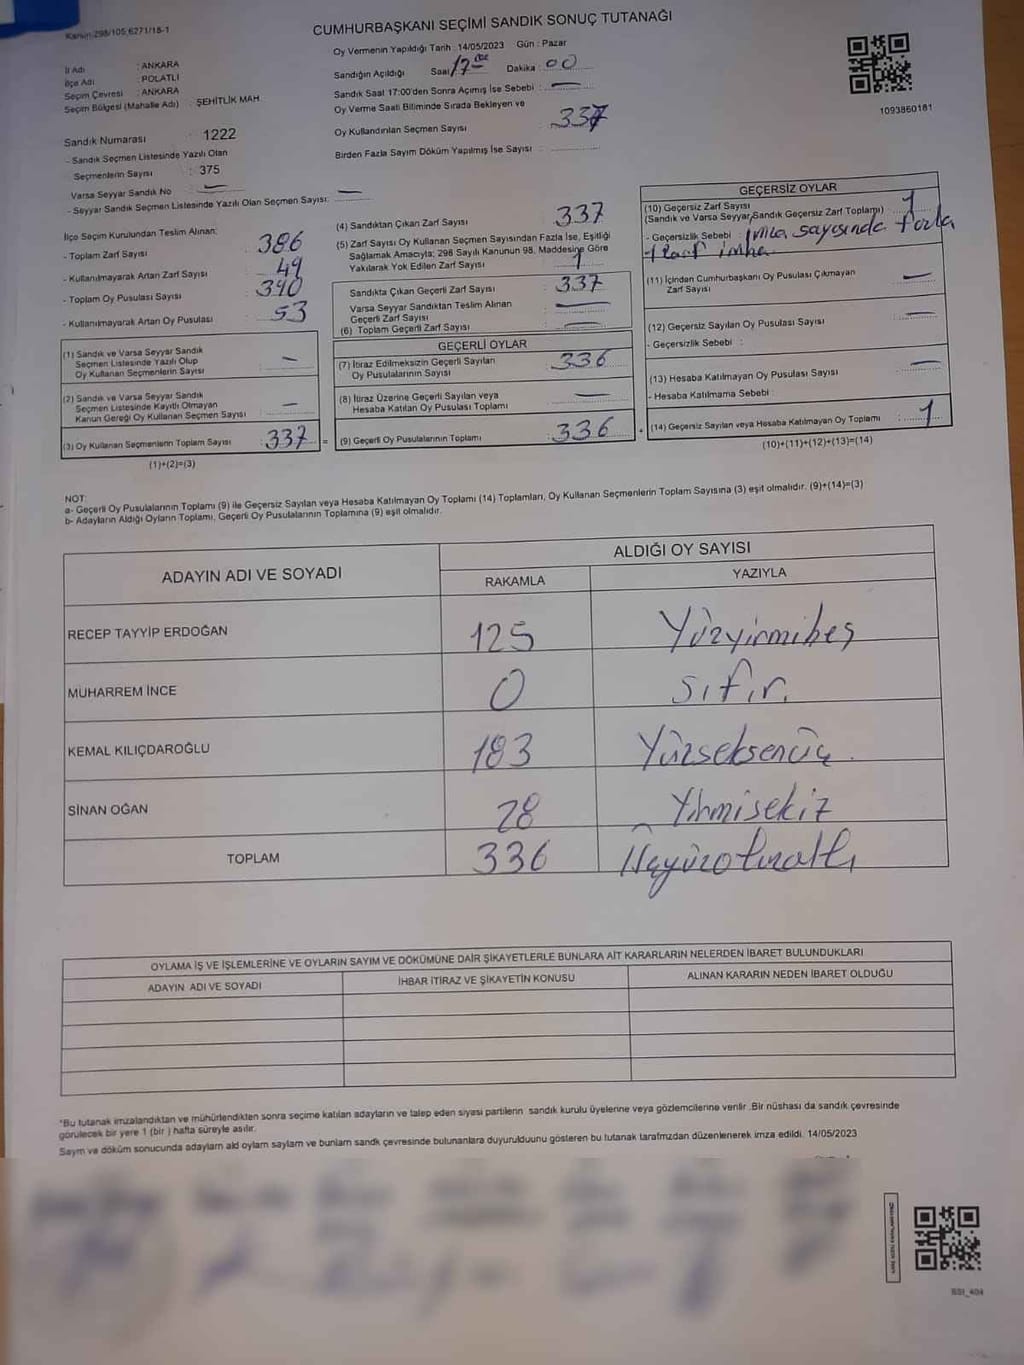 Kanun:298/105,6271/18-1
CUMHURBAŞKANI SEÇİMİ SANDIK SONUÇ TUTANAĞI
İl Adı : ANKARA
İlçe Adı : POLATLI
Seçim Çevresi : ANKARA
Seçim Bölgesi (Mahalle Adı) : ŞEHİTLİK MAH.
Sandık Numarası : 1222
- Sandık Seçmen Listesinde Yazılı Olan
Seçmenlerin Sayısı : 375
Varsa Seyyar Sandık No : —
- Seyyar Sandık Seçmen Listesinde Yazılı Olan Seçmen Sayısı: —
Oy Vermenin Yapıldığı Tarih : 14/05/2023 Gün : Pazar
Sandığın Açıldığı Saat 17 Dakika : 00
Sandık Saat 17:00'den Sonra Açılmış İse Sebebi : —
Oy Verme Saati Bitiminde Sırada Bekleyen ve
Oy Kullandırılan Seçmen Sayısı : 337
Birden Fazla Sayım Döküm Yapılmış İse Sayısı :
1093860181
İlçe Seçim Kurulundan Teslim Alınan:
- Toplam Zarf Sayısı : 386
- Kullanılmayarak Artan Zarf Sayısı : 49
- Toplam Oy Pusulası Sayısı : 390
- Kullanılmayarak Artan Oy Pusulası : 53
(1) Sandık ve Varsa Seyyar Sandık
Seçmen Listesinde Yazılı Olup
Oy Kullanan Seçmenlerin Sayısı : —
(2) Sandık ve Varsa Seyyar Sandık
Seçmen Listesinde Kayıtlı Olmayan
Kanun Gereği Oy Kullanan Seçmen Sayısı : —
(3) Oy Kullanan Seçmenlerin Toplam Sayısı : 337 =
(1)+(2)=(3)
(4) Sandıktan Çıkan Zarf Sayısı : 337
(5) Zarf Sayısı Oy Kullanan Seçmen Sayısından Fazla İse, Eşitliği
Sağlamak Amacıyla; 298 Sayılı Kanunun 98. Maddesine Göre
Yakılarak Yok Edilen Zarf Sayısı : 1
Sandıkta Çıkan Geçerli Zarf Sayısı : 337
Varsa Seyyar Sandıktan Teslim Alınan
Geçerli Zarf Sayısı : —
(6) Toplam Geçerli Zarf Sayısı : —
GEÇERLİ OYLAR
(7) İtiraz Edilmeksizin Geçerli Sayılan
Oy Pusulalarının Sayısı : 336
(8) İtiraz Üzerine Geçerli Sayılan veya
Hesaba Katılan Oy Pusulası Toplamı : —
(9) Geçerli Oy Pusulalarının Toplamı : 336 +
GEÇERSİZ OYLAR
(10) Geçersiz Zarf Sayısı
(Sandık ve Varsa Seyyar Sandık Geçersiz Zarf Toplamı) : 1
- Geçersizlik Sebebi : İmza sayısında fazla
1 zarf imha
(11) İçinden Cumhurbaşkanı Oy Pusulası Çıkmayan
Zarf Sayısı : —
(12) Geçersiz Sayılan Oy Pusulası Sayısı : —
- Geçersizlik Sebebi :
(13) Hesaba Katılmayan Oy Pusulası Sayısı : —
- Hesaba Katılmama Sebebi :
(14) Geçersiz Sayılan veya Hesaba Katılmayan Oy Toplamı : 1
(10)+(11)+(12)+(13)=(14)
NOT:
a- Geçerli Oy Pusulalarının Toplamı (9) ile Geçersiz Sayılan veya Hesaba Katılmayan Oy Toplamı (14) Toplamları, Oy Kullanan Seçmenlerin Toplam Sayısına (3) eşit olmalıdır. (9)+(14)=(3)
b- Adayların Aldığı Oyların Toplamı, Geçerli Oy Pusulalarının Toplamına (9) eşit olmalıdır.
ADAYIN ADI VE SOYADI
ALDIĞI OY SAYISI
RAKAMLA YAZIYLA
RECEP TAYYİP ERDOĞAN 125 Yüzyirmibeş
MUHARREM İNCE 0 sıfır.
KEMAL KILIÇDAROĞLU 183 Yüzseksenüç.
SİNAN OĞAN 28 Yirmisekiz
TOPLAM 336 Üçyüzotuzaltı
OYLAMA İŞ VE İŞLEMLERİNE VE OYLARIN SAYIM VE DÖKÜMÜNE DAİR ŞİKAYETLERLE BUNLARA AİT KARARLARIN NELERDEN İBARET BULUNDUKLARI
ADAYIN ADI VE SOYADI İHBAR İTİRAZ VE ŞİKAYETİN KONUSU ALINAN KARARIN NEDEN İBARET OLDUĞU
*Bu tutanak imzalandıktan ve mühürlendikten sonra seçime katılan adayların ve talep eden siyasi partilerin sandık kurulu üyelerine veya gözlemcilerine verilir. Bir nüshası da sandık çevresinde
görülecek bir yere 1 (bir ) hafta süreyle asılır.
Saym ve döküm sonucunda adaylarn ald oylarn saylarn ve bunların sandk çevresinde bulunanlara duyurulduunu gösteren bu tutanak tarafmzdan düzenlenerek imza edildi. 14/05/2023
SSI_404